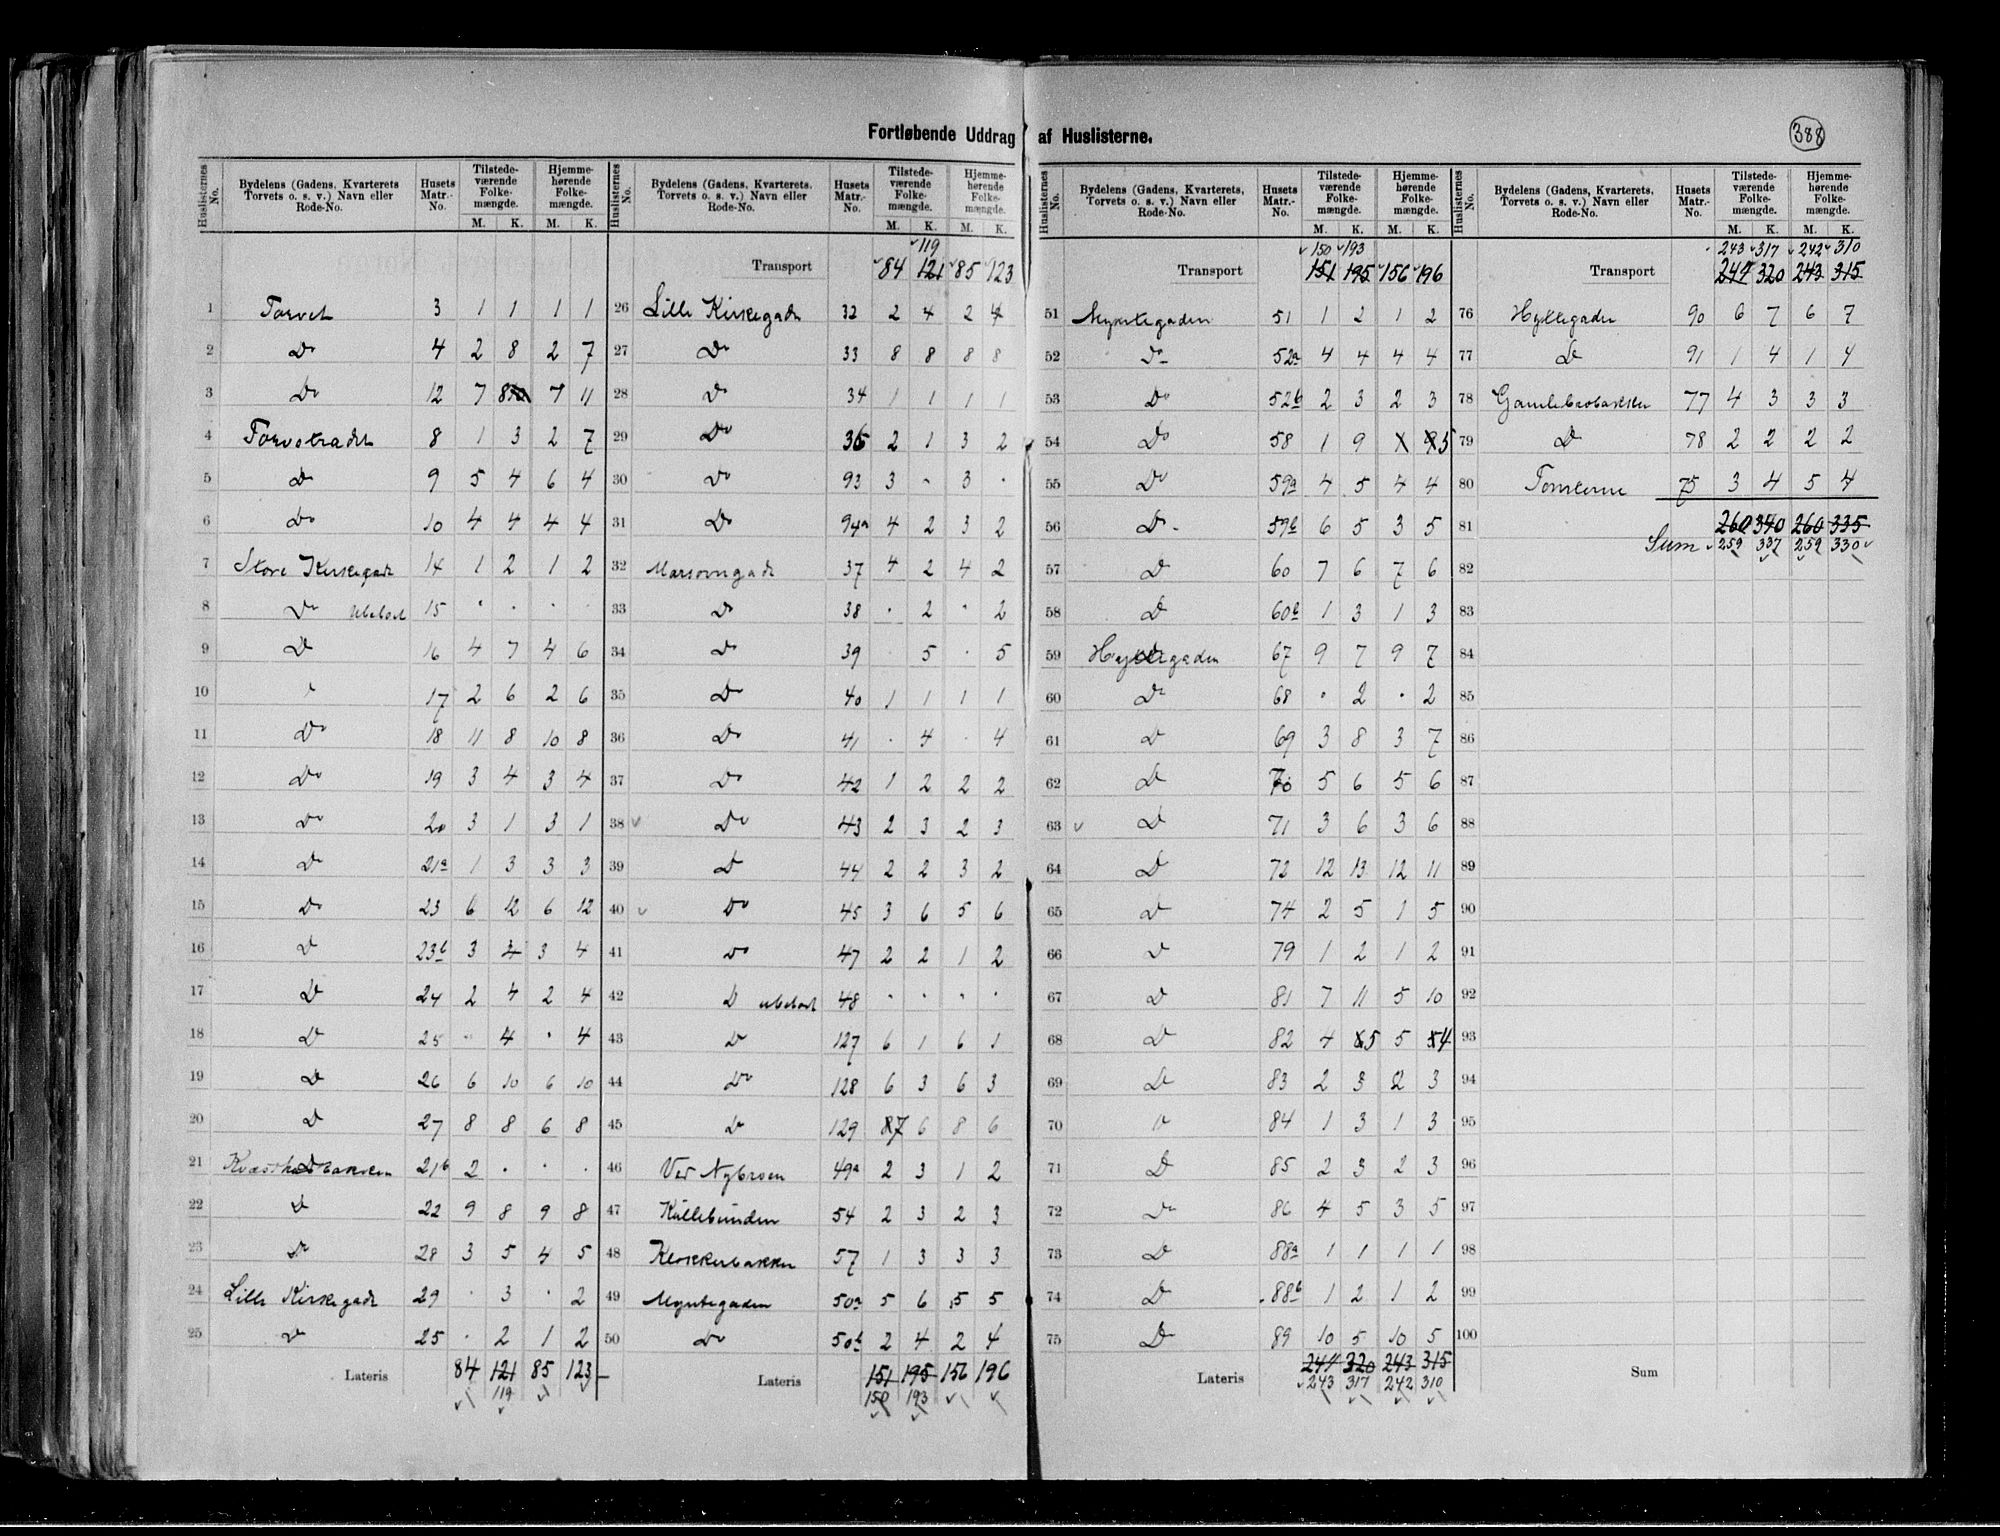 Fortløbende Uddrag af Huslisterne.
388
Huslisternes No. | Bydelens (Gadens, Kvarterets Torvets o. s. v.) Navn eller Rode-No. | Husets Matr.-No. | Tilstedeværende Folkemængde. M. K. | Hjemmehørende Folkemængde. M. K.
1 Torvet 3 1 1 1 1
2 Do 4 2 8 2 7
3 Do 12 7 8 7 11
4 Torvetradet 8 1 3 2 7
5 Do 9 5 4 6 4
6 Do 10 4 4 4 4
7 Store Kirkegade 14 1 2 1 2
8 Do Ubeboet 15 . . . .
9 Do 16 4 7 4 6
10 17 2 6 2 6
11 Do 18 11 8 10 8
12 Do 19 3 4 3 4
13 Do 20 3 1 3 1
14 Do 21a 1 3 3 3
15 Do 23 6 12 6 12
16 Do 23b 3 4 3 4
17 Do 24 2 4 2 4
18 Do 25 . 4 . 4
19 Do 26 6 10 6 10
20 Do 27 8 8 6 8
21 21b 2 . . .
22 Do 22 9 8 9 8
23 Do 28 3 5 4 5
24 Lille Kirkegade 29 . 3 . 2
25 Do 25 . 2 1 2
Lateris 84 121 85 123
119
Huslisternes No. | Bydelens (Gadens, Kvarterets, Torvets o. s. v.) Navn eller Rode-No. | Husets Matr.-No. | Tilstedeværende Folkemængde. M. K. | Hjemmehørende Folkemængde. M. K.
119
Transport 84 121 85 123
26 Lille Kirkegade 32 2 4 2 4
27 Do 33 8 8 8 8
28 Do 34 1 1 1 1
29 Do 36 2 1 3 2
30 Do 93 3 . 3 .
31 Do 94a 4 2 3 2
32 Marsvingade 37 4 2 4 2
33 Do 38 . 2 . 2
34 Do 39 . 5 . 5
35 Do 40 1 1 1 1
36 Do 41 . 4 . 4
37 Do 42 1 2 2 2
38 Do 43 2 3 2 3
39 Do 44 2 2 3 2
40 Do 45 3 6 5 6
41 Do 47 2 2 1 2
42 Do ubeboet 48 . . . .
43 Do 127 6 1 6 1
44 Do 128 6 3 6 3
45 Do 129 87 6 8 6
46 Ved Nybroen 49a 2 3 1 2
47 Kattebunden 54 2 3 2 3
48 Klokkerbakken 57 1 3 3 3
49 Myntegaden 50a 5 6 5 5
50 Do 50b 2 4 2 4
Lateris 151 195 156 196
150 193
Huslisternes No. | Bydelens (Gadens, Kvarterets, Torvets o. s. v.) Navn eller Rode-No. | Husets Matr.-No. | Tilstedeværende Folkemængde. M. K. | Hjemmehørende Folkemængde. M. K.
150 193
Transport 151 195 156 196
51 Myntegaden 51 1 2 1 2
52 Do 52a 4 4 4 4
53 Do 52b 2 3 2 3
54 Do 58 1 9 1 95
55 Do 59a 4 5 4 4
56 Do 59b 6 5 3 5
57 Do 60 7 6 7 6
58 Do 60b 1 3 1 3
59 Hyllegaden 67 9 7 9 7
60 Do 68 . 2 . 2
61 Do 69 3 8 3 7
62 Do 70 5 6 5 6
63 Do 71 3 6 3 6
64 Do 72 12 13 12 11
65 Do 74 2 5 1 5
66 Do 79 1 2 1 2
67 Do 81 7 11 5 10
68 Do 82 4 5 5 4
69 Do 83 2 3 2 3
70 Do 84 1 3 1 3
71 Do 85 2 3 2 3
72 Do 86 4 5 3 5
73 Do 88a 1 1 1 1
74 Do 88b 1 2 1 2
75 Do 89 10 5 10 5
Lateris 244 320 243 315
243 317 242 310
Huslisternes No. | Bydelens (Gadens, Kvarterets, Torvets o. s. v.) Navn eller Rode-No. | Husets Matr.-No. | Tilstedeværende Folkemængde. M. K. | Hjemmehørende Folkemængde. M. K.
243 317 242 310
Transport 244 320 243 315
76 Hyllegaden 90 6 7 6 7
77 Do 91 1 4 1 4
78 77 4 3 3 3
79 Do 78 2 2 2 2
80 Tomterne 75 3 4 5 4
81 260 340 260 335
Sum 259 337 259 330
82
83
84
85
86
87
88
89
90
91
92
93
94
95
96
97
98
99
100
Sum